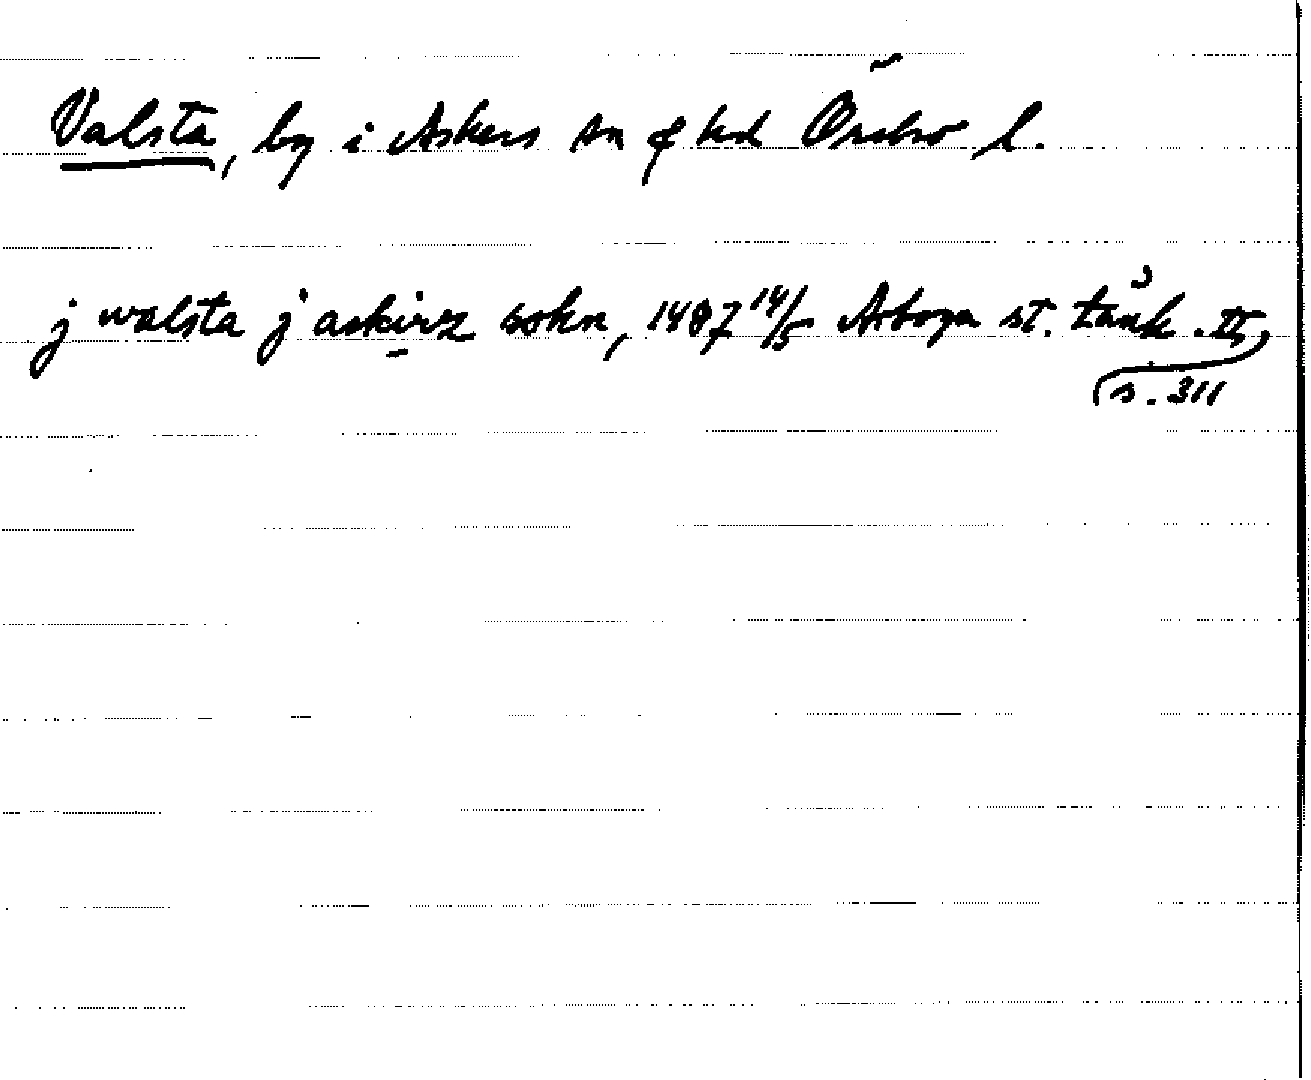 Valsta, by i Askers sn o hd Örebro l.
j walsta j askirz sokn, 1487 14/5 Arboga st. tänk. II,
s. 311